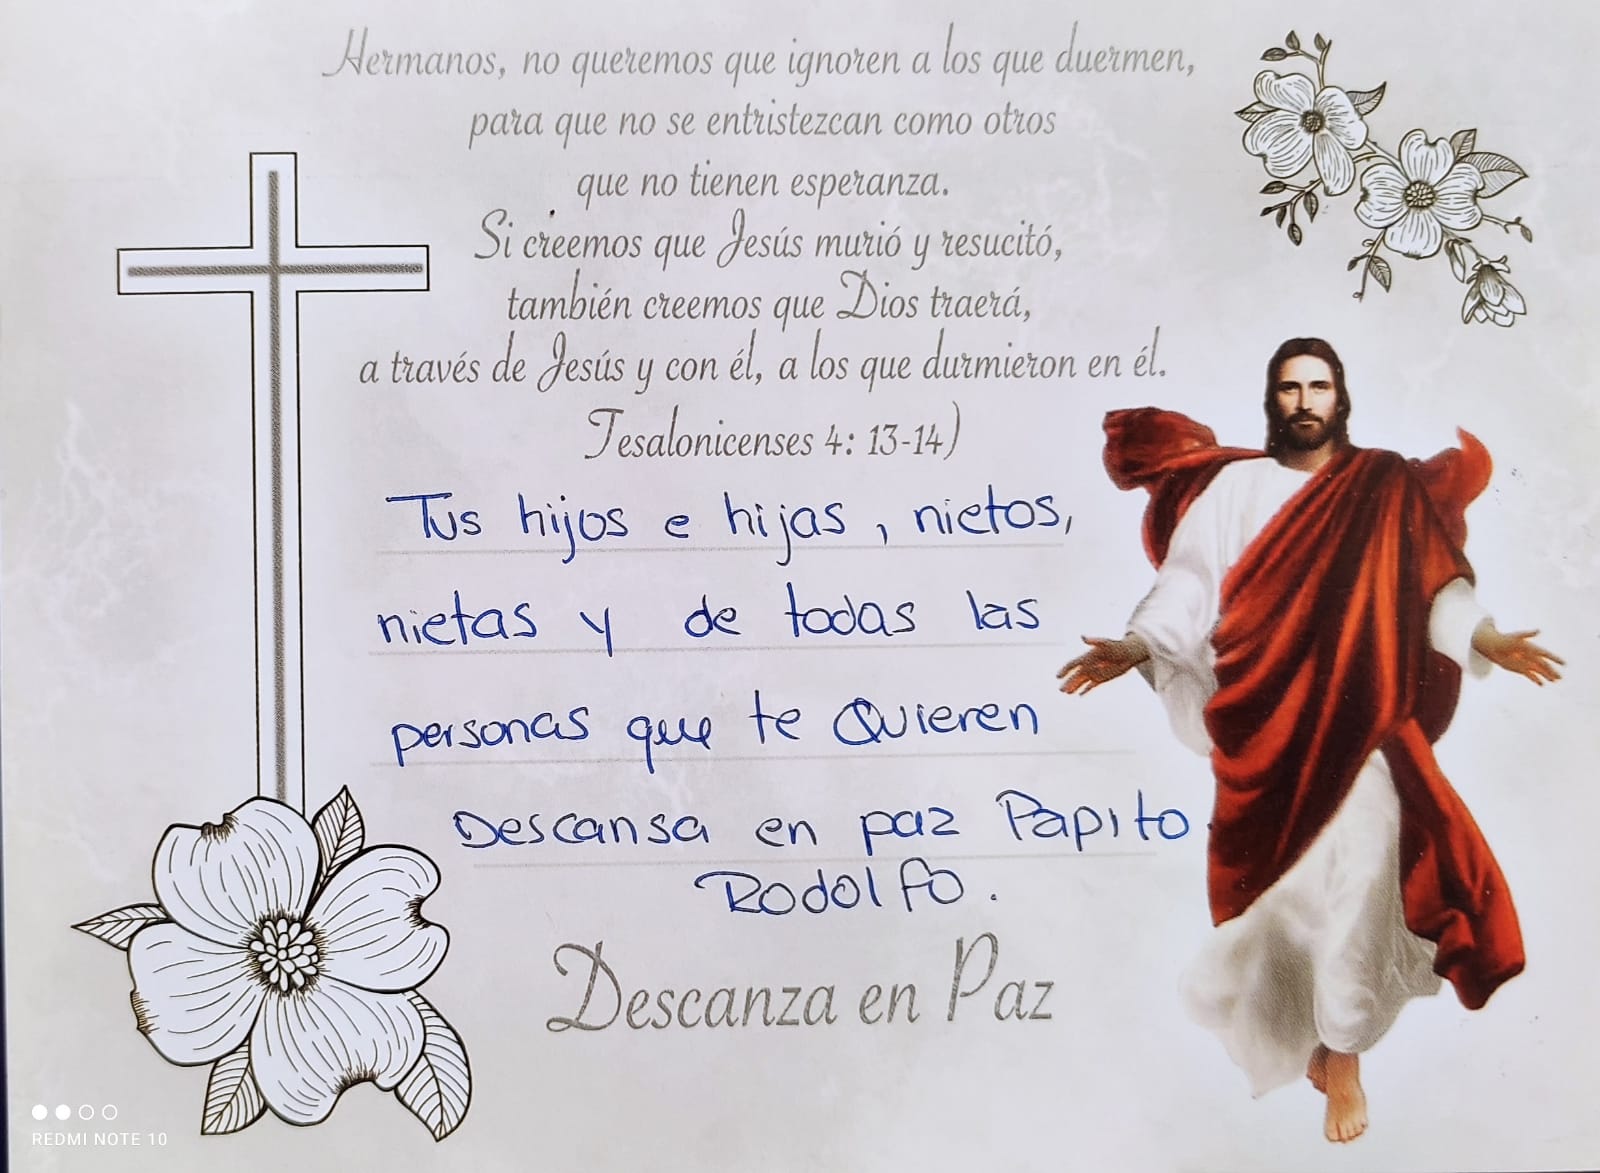 Hermanos, no queremos que ignoren a los que duermen,
para que no se entristezcan como otros
que no tienen esperanza.
Si creemos que Jesús murió y resucitó,
también creemos que Dios traerá,
a través de Jesús y con él, a los que durmieron en él.
Tesalonicenses 4: 13-14)
Tus hijos e hijas, nietos,
nietas y de todas las
personas que te Quieren
Descansa en paz Papito
Rodolfo.
Descanza en Paz
REDMI NOTE 10